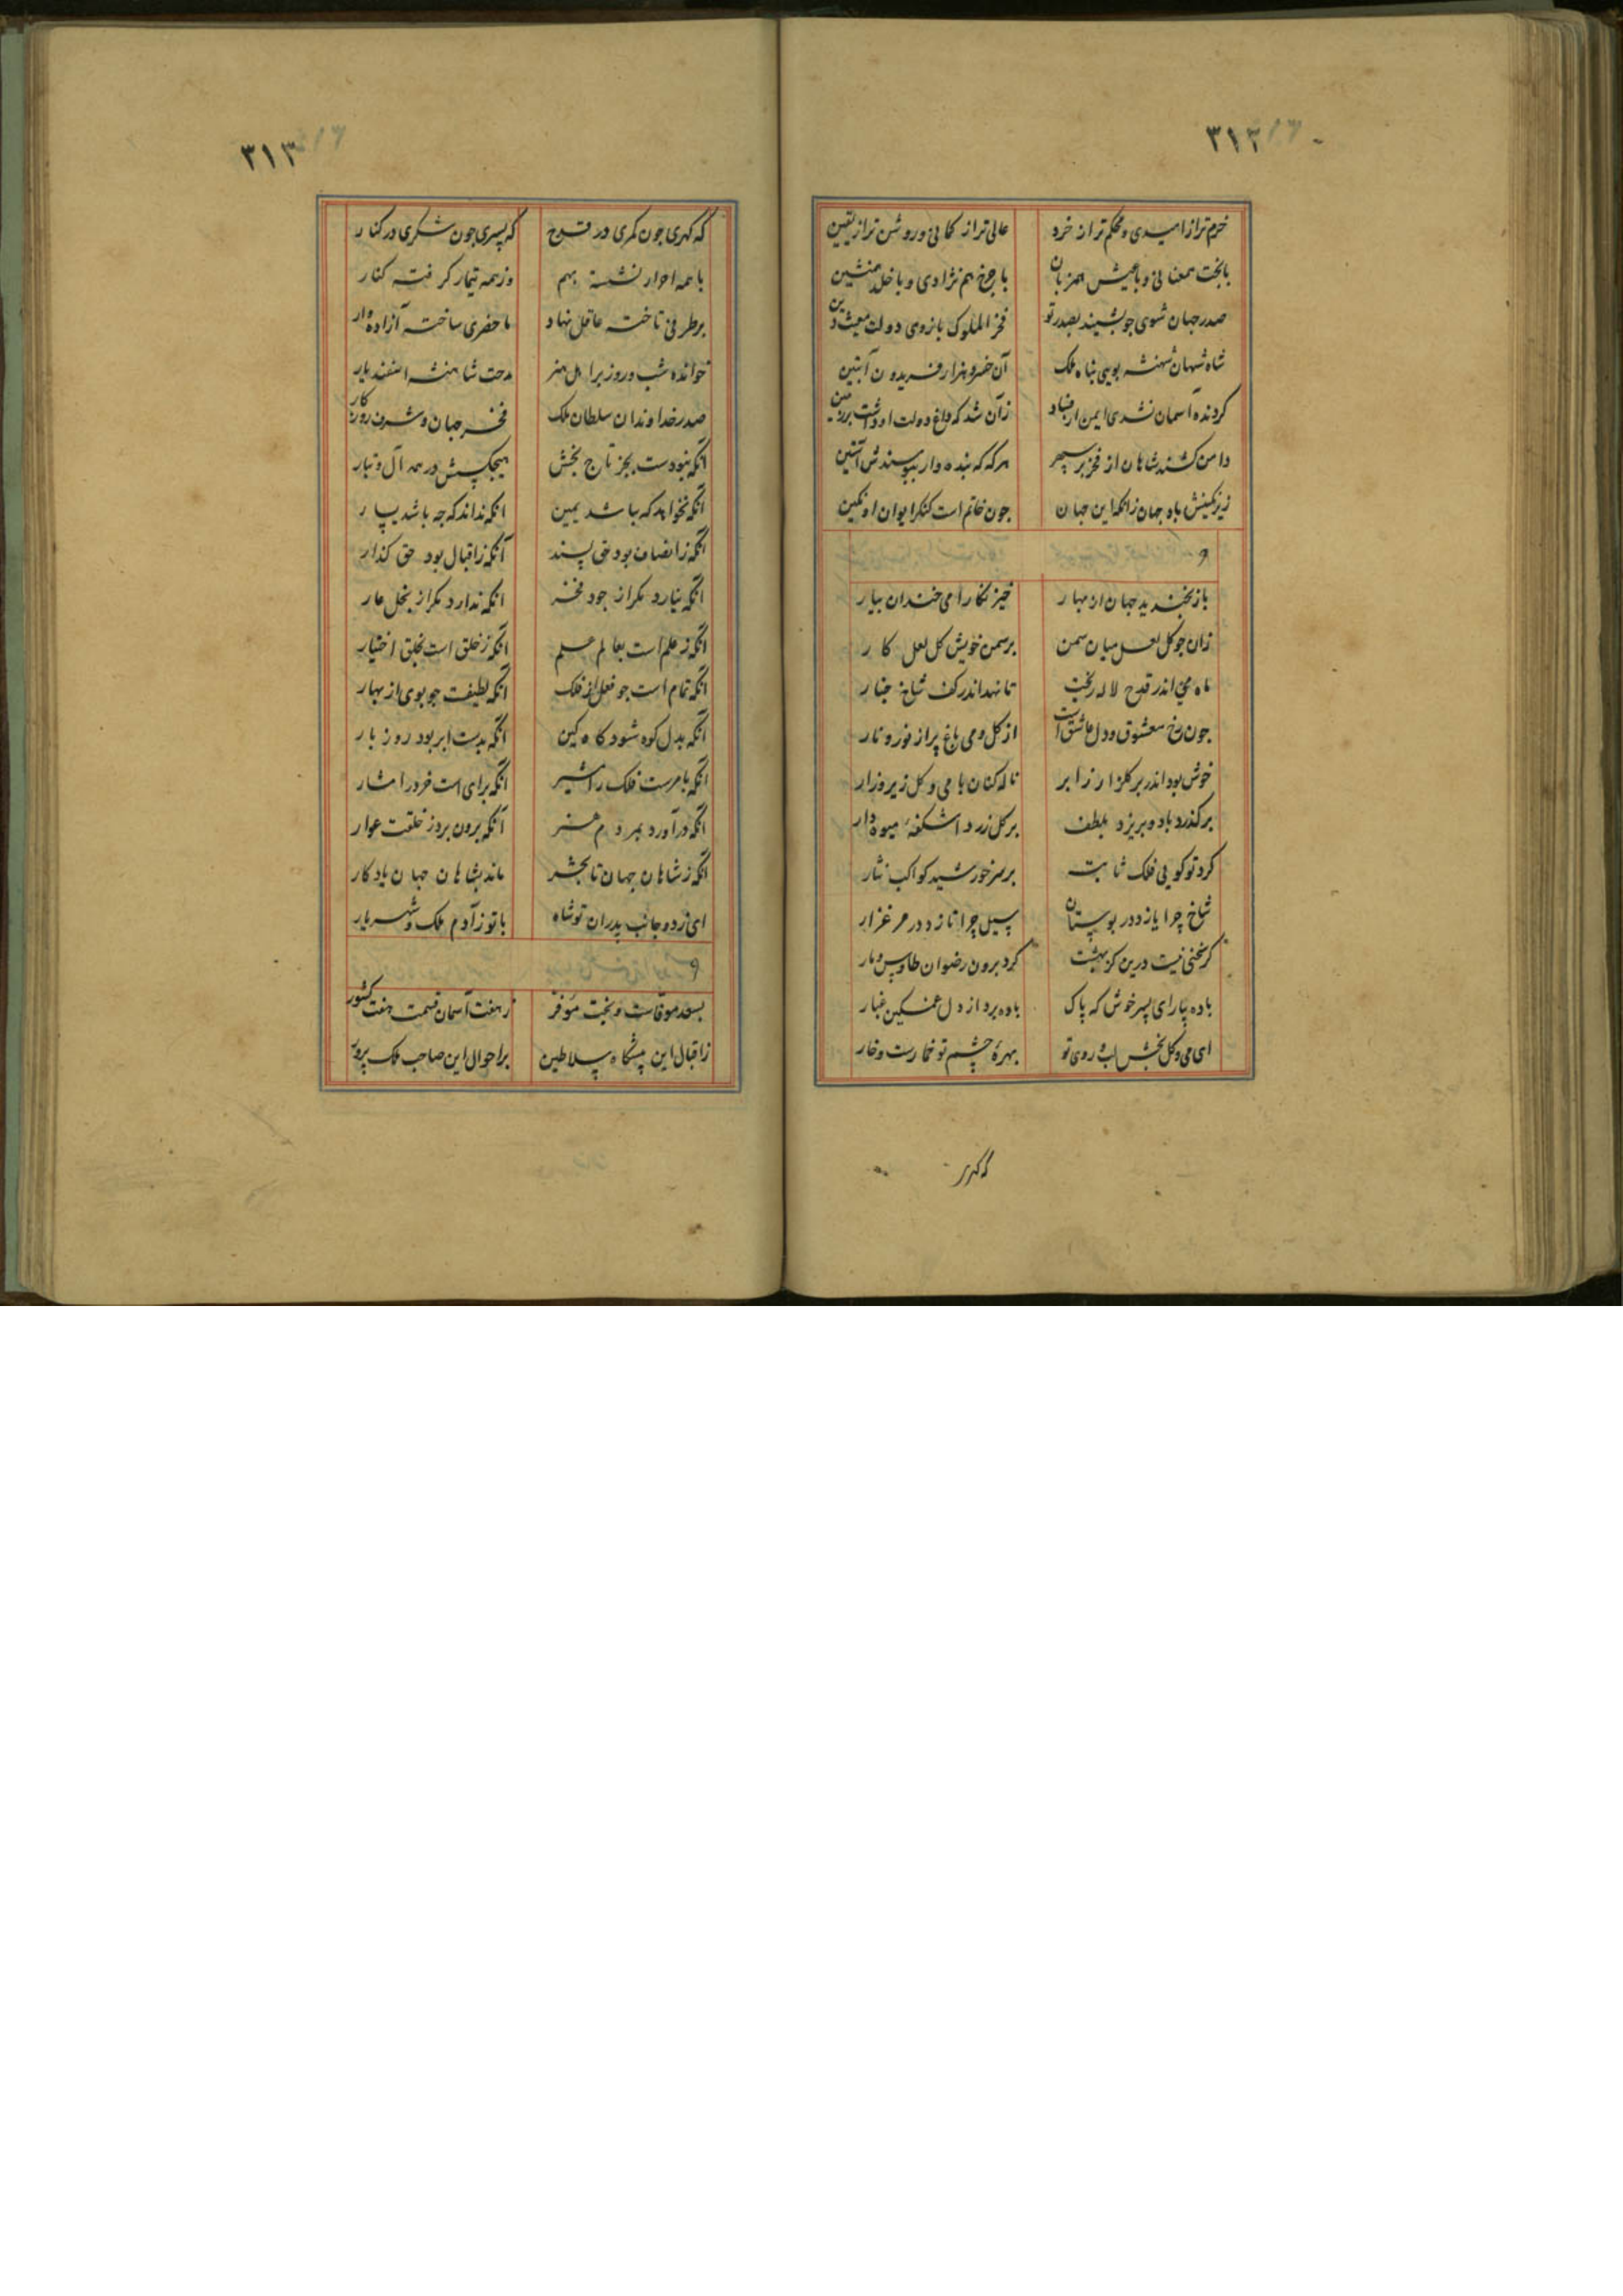 ۳۱۲
خرم تر از امیدی و محکم تر از خرد عالی تر از کمانی و روشن تر از یقین
با بخت همعنانی و با عیش همزبان با چرخ هم نژادی و با خلد همنشین
صدر جهان شوی چو نشیند بصدر تو فخر الملوک بازوی دولت مغیث دین
شاه شهان شهنشه بویی پناه ملک آن خسرو هزار فریدون آبتین
کردنده آسمان نشدی ایمن از فساد زآن شد که داغ دولت او داشت بر سرین
دامن کشند شاهان از فخر بر سپهر هر که که بنده وار ببوسندش آستین
زیر نکینش باد جهان زانکه این جهان چون خاتم است کنکر ایوان او نکین
و
باز بخندید جهان از بهار خیز نکارا می خندان بیار
زان چو کل لعل میان سمن بر سمن خویش کل لعل کار
ماه می اندر قدح لاله ریخت تا نهد اندر کف شاخ چنار
جون رخ معشوق و دل عاشق است از کل و می باغ پر از نور و نار
خوش بود اندر بر کلزار زابر ناله کنان با می و کل زیر و زار
بر کذرد باد و بریزد بلطف بر کل زرد اشکفهٔ میوه دار
کرد تو کویی فلک ثابته بر سر خورشید کواکب نثار
شاخ چرا یازد در بوستان سیل چرا تازد در مرغزار
کر سخنی نیست درین کز بهشت کرد برون رضوان طاوس و مار
باده بیار ای پسر خوش که پاک باده برد از دل غمکین غبار
ای می و کل بخش لب و روی تو بهرهٔ چشم تو خمارست و خار
که کهری
۳۱۳
که کهری چون کمری در قدح که پسری چون شکری در کنار
با همه احرار نشسته بهم وز همه تیمار کرفته کنار
بر طرفی تاخته عاقل نهاد ما حضری ساخته آزاده وار
خوانده شب و روز بر اهل هنر مدحت شاهنشه اسفندیار
صدر خداوندان سلطان ملک فخر جهان و شرف روزکار
آنکه نبودست بجز تاج بخش هیچکسش در همه آل و تبار
آنکه نخواهد که بباشد یمین آنکه نداند که چه باشد یسار
آنکه زانصاف بود حق پسند آنکه زاقبال بود حق کذار
آنکه نیارد مکر از جود فخر آنکه ندارد مکر از بخل عار
آنکه زعلم است بعالم علم آنکه زخلق است بخلق اختیار
آنکه تمام است چو فعل از فلک آنکه لطیفست چو بوی از بهار
آنکه بدل کوه شود کاه کین آنکه بدست ابر بود روز بار
آنکه بامرست فلک را مشیر آنکه برای است خرد را مشار
آنکه درآورد بمردم هنر آنکه برون برد ز خلقت عوار
آنکه زشاهان جهان تا بحشر ماند بشاهان جهان یادکار
ای زدو جانب پدران تو شاه با تو زآدم ملک و شهریار
و
بسعد موفاست و بخت موفر زهفت آسمان قسمت هفت کشور
زاقبال این پیشکاه سلاطین بر احوال این صاحب ملک پرور